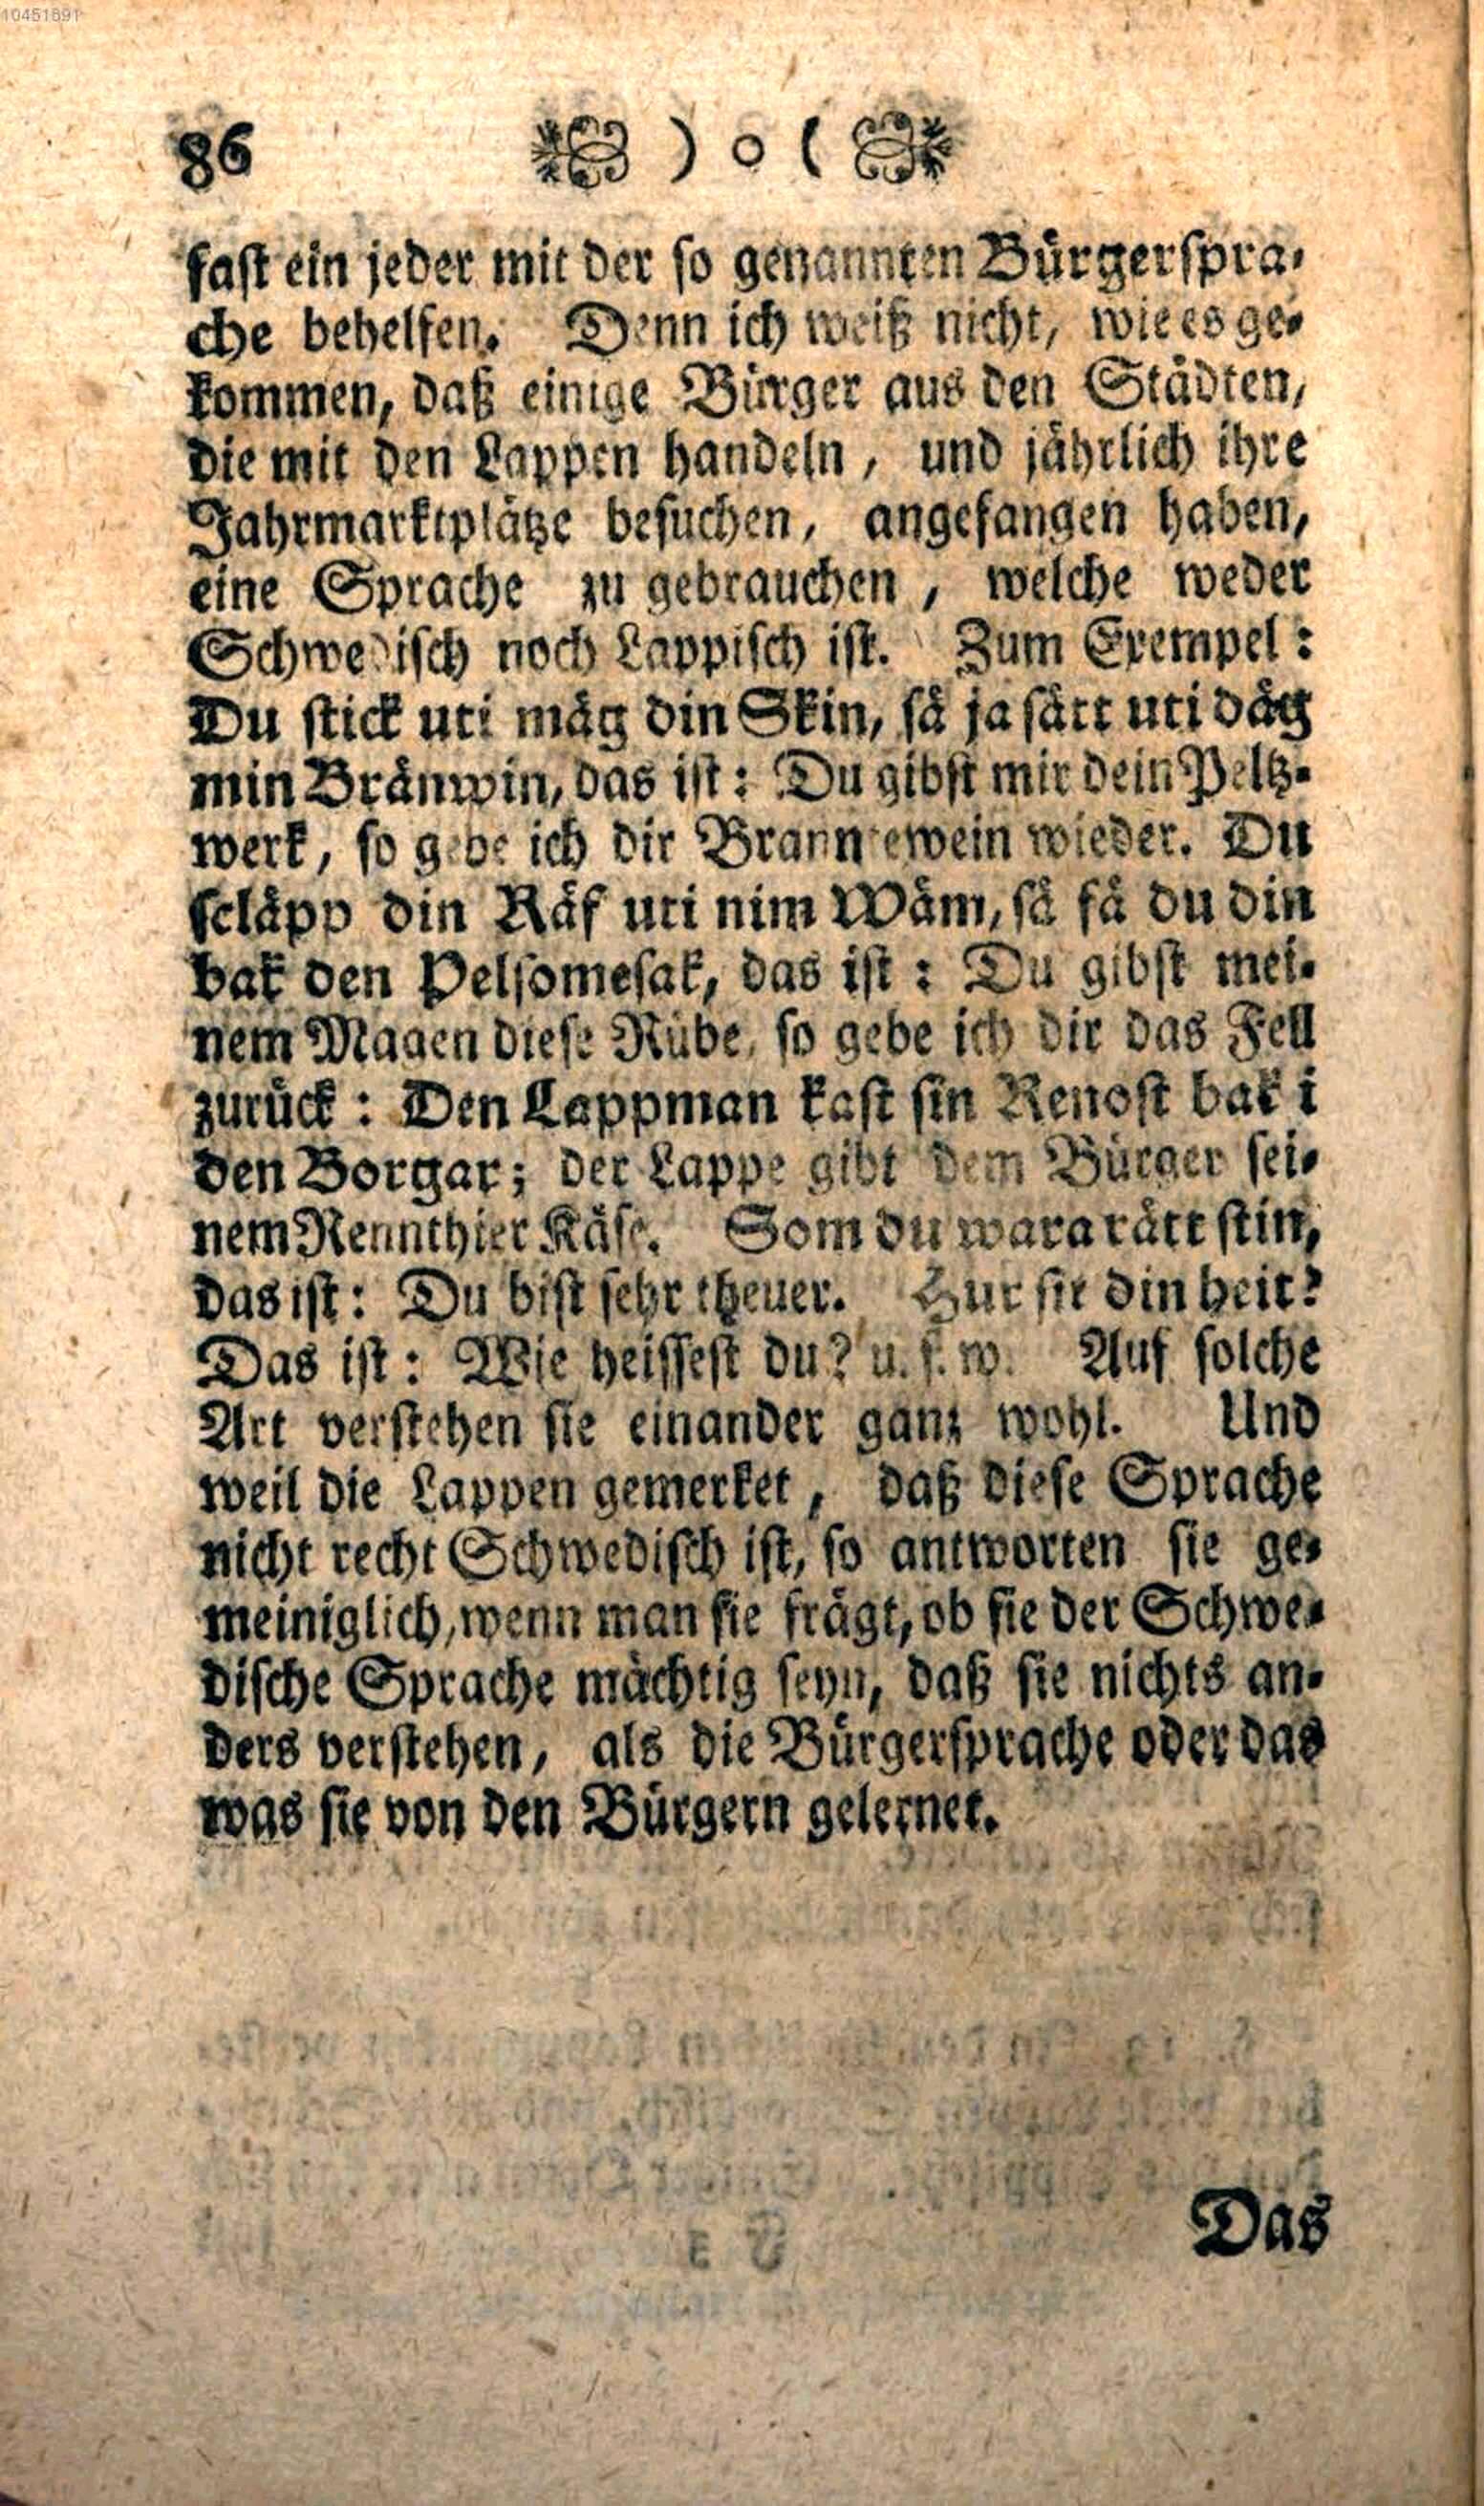 10451691
86 ) o (
fast ein jeder mit der so genannten Bürgerspra-
che behelfen. Denn ich weiß nicht, wie es ge-
kommen, daß einige Bürger aus den Städten,
die mit den Lappen handeln, und jährlich ihre
Jahrmarktplätze besuchen, angefangen haben,
eine Sprache zu gebrauchen, welche weder
Schwedisch noch Lappisch ist. Zum Exempel:
Du stick uti mäg din Skin, så ja sätt uti däg
min Bränwin, das ist: Du gibst mir dein Peltz-
werk, so gebe ich dir Branntewein wieder. Du
scläpp din Räf uti nim Wäm, så få du din
bak den Pelsomesak, das ist: Du gibst mei-
nem Magen diese Rübe, so gebe ich dir das Fell
zurück: Den Lappman kast sin Renost bak i
den Borgar; der Lappe gibt dem Bürger sei-
nem Rennthier Käse. Som du wara rätt stin,
das ist: Du bist sehr theuer. Hur sit din heit?
Das ist: Wie heissest du? u. s. w. Auf solche
Art verstehen sie einander ganz wohl. Und
weil die Lappen gemerket, daß diese Sprache
nicht recht Schwedisch ist, so antworten sie ge-
meiniglich, wenn man sie frägt, ob sie der Schwe-
dische Sprache mächtig seyn, daß sie nichts an-
ders verstehen, als die Bürgersprache oder das
was sie von den Bürgern gelernet.
Das